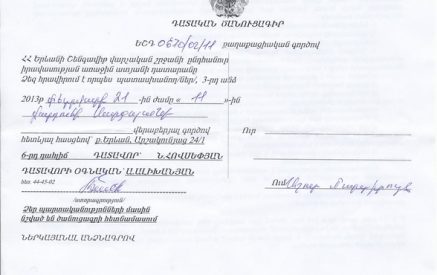 ԴԱՏԱԿԱՆ ԾԱՆՈՒՑԱԳԻՐ
ԵՇԴ 0570/02/11 քաղաքացիական գործով
ՀՀ Երևանի Շենգավիթ վարչական շրջանի ընդհանուր
իրավասության առաջին ատյանի դատարանը
Ձեզ հրավիրում է որպես պատասխանող/ներ/, 3-րդ անձ
2013թ 21 -ին ժամը « 11 »-ին
վերաբերյալ գործով
հետևյալ հասցեով՝ ք.Երևան, Արշակունյաց 24/1
6-րդ դահլիճ ԴԱՏԱՎՈՐ՝ Ն.ՀՈՎՍԵՓՅԱՆ
ԴԱՏԱՎՈՐԻ ՕԳՆԱԿԱՆ՝ Ա.ԱԼԻԽԱՆՅԱՆ
հեռ. 44-45-02
/ստորագրություն/
Ձեր պարտականությունների մասին
նշված են ծանուցագրի հետևամասում
ՆԵՐԿԱՅԱՆԱԼ ԱՆՁՆԱԳՐՈՎ
Ուր
Ում